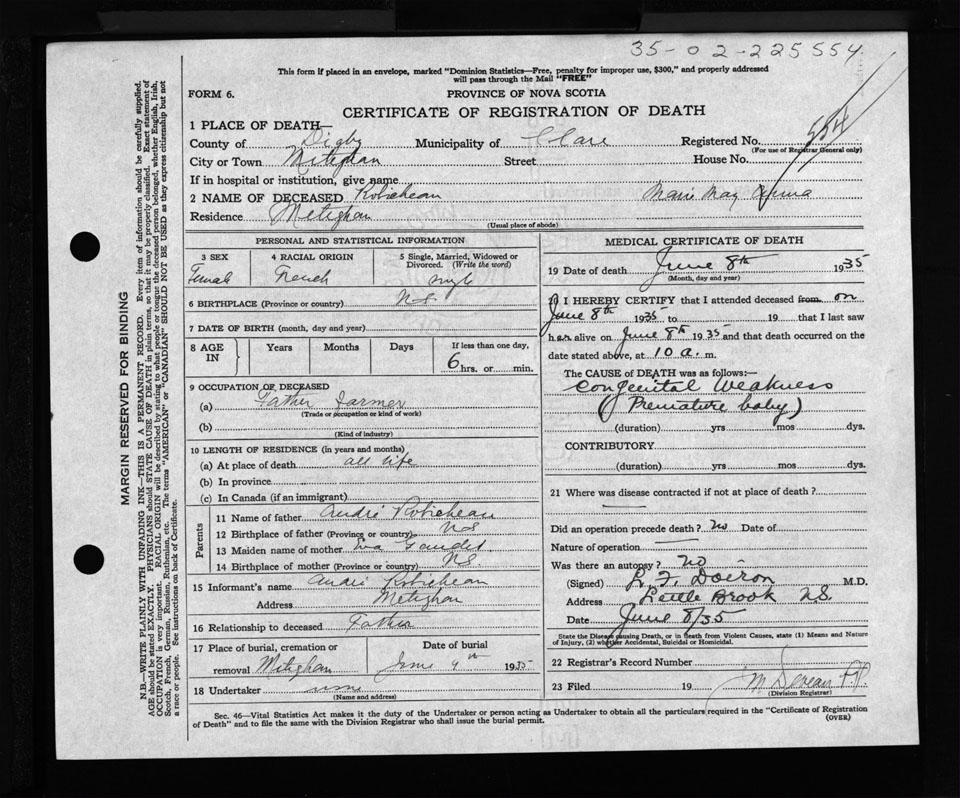 35-02-225554
This form if placed in an envelope, marked "Dominion Statistics—Free, penalty for improper use, $300," and properly addressed
will pass through the Mail "FREE"
FORM 6.
PROVINCE OF NOVA SCOTIA
CERTIFICATE OF REGISTRATION OF DEATH
1 PLACE OF DEATH—
County of Digby Municipality of Clare Registered No. 554
(For use of Registrar General only)
City or Town Meteghan Street House No.
If in hospital or institution, give name
2 NAME OF DECEASED Robicheau Marie May Anna
Residence Meteghan
(Usual place of abode)
PERSONAL AND STATISTICAL INFORMATION
3 SEX Female
4 RACIAL ORIGIN French
5 Single, Married, Widowed or Divorced. (Write the word) single
6 BIRTHPLACE (Province or country) N.S.
7 DATE OF BIRTH (month, day and year)
8 AGE IN Years Months Days If less than one day, 6 hrs. or min.
9 OCCUPATION OF DECEASED
(a) Father Farmer
(Trade or occupation or kind of work)
(b)
(Kind of industry)
10 LENGTH OF RESIDENCE (in years and months)
(a) At place of death all life
(b) In province
(c) In Canada (if an immigrant)
Parents
11 Name of father André Robicheau
12 Birthplace of father (Province or country) N.S.
13 Maiden name of mother Eva Gaudet
14 Birthplace of mother (Province or country) N.S.
15 Informant's name André Robicheau
Address Meteghan
16 Relationship to deceased Father
17 Place of burial, cremation or removal Meteghan
Date of burial June 9th 1935
18 Undertaker none
(Name and address)
MEDICAL CERTIFICATE OF DEATH
19 Date of death June 8th 1935
(Month, day and year)
20 I HEREBY CERTIFY that I attended deceased from on
June 8th 1935 to 19 that I last saw
her alive on June 8th 1935 and that death occurred on the
date stated above, at 10 a. m.
The CAUSE OF DEATH was as follows:—
Congenital Weakness
(Premature baby)
(duration) yrs mos dys.
CONTRIBUTORY
(duration) yrs mos dys.
21 Where was disease contracted if not at place of death?
Did an operation precede death? no Date of
Nature of operation
Was there an autopsy? no
(Signed) L. F. Doiron M.D.
Address Little Brook N.S.
Date June 8/35
State the Disease causing Death, or in death from Violent Causes, state (1) Means and Nature
of Injury, (2) whether Accidental, Suicidal or Homicidal.
22 Registrar's Record Number
23 Filed 19
(Division Registrar)
Sec. 46—Vital Statistics Act makes it the duty of the Undertaker or person acting as Undertaker to obtain all the particulars required in the "Certificate of Registration
of Death" and to file the same with the Division Registrar who shall issue the burial permit.
(OVER)
MARGIN RESERVED FOR BINDING
N.B.—WRITE PLAINLY WITH UNFADING INK—THIS IS A PERMANENT RECORD. Every item of information should be carefully supplied.
AGE should be stated EXACTLY. PHYSICIANS should STATE CAUSE OF DEATH in plain terms, so that it may be properly classified. Exact statement of
OCCUPATION is very important. RACIAL ORIGIN will be described by stating to what people or tongue the deceased person belonged, whether English, Irish,
Scotch, French, German, Russian, Ruthenian, etc. The terms "AMERICAN" or "CANADIAN" SHOULD NOT BE USED as they express citizenship but not
a race or people. See instructions on back of Certificate.